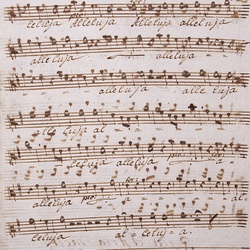 leluja alleluja alleluja alleluja
alleluja - - - alleluja -
- - - alleluja - - - alleluja
alleluja al - - - - -
- - leluja alleluja - - -
alleluja - - - - - al -
- - leluja al - leluja.